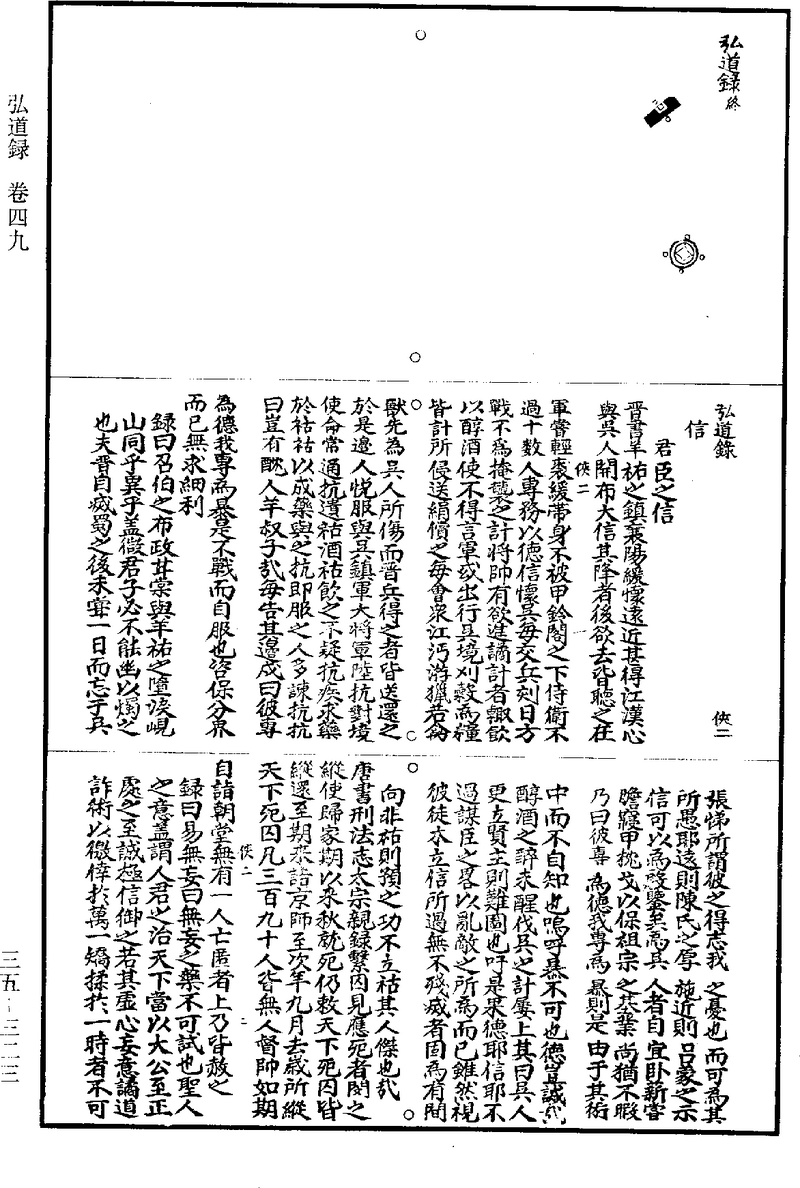 弘道録 卷四九
三五-三二三
弘道録終
弘道録
俠二
信
君臣之信
晉書羊祜之鎮襄陽緩懷遠近甚得江漢心
與吳人開布大信其降者後欲去皆聽之在
俠二
軍常輕裘緩帶身不被甲鈴閣之下侍衛不
過十數人專務以德信懷吳每交兵刻日方
戰不為掩襲之計將帥有欲進譎計者輒飲
以醇酒使不得言軍或出行吳境刈穀為糧
皆計所侵送絹償之每會衆江沔游獵若禽
獸先為吳人所傷而晉兵得之者皆送還之
於是邊人悅服與吳鎮軍大將軍陸抗對境
使命常通抗遺祜酒祜飲之不疑抗疾求藥
於祜祜以成藥與之抗即服之人多諫抗抗
曰豈有酖人羊叔子哉每告其邊戍曰彼專
為德我專為暴是不戰而自服也咨保分界
而已無求細利
録曰召伯之布政甘棠與羊祜之墮淚峴
山同乎異乎蓋微君子必不能幽以燭之
也夫晉自滅蜀之後未嘗一日而忘乎吳
張悌所謂彼之得志我之憂也而可為其
所愚耶遠則陳氏之厚施近則呂蒙之示
信可以為殷鑒矣為吳人者自宜卧薪嘗
膽寢甲枕戈以保祖宗之基業尚猶不暇
乃曰彼專為德我專為暴則是由于其術
中而不自知也嗚呼暴不可也德豈誠哉
醇酒之醉未醒伐吳之計屢上其曰吳人
更立賢主則難圖也吁是果德耶信耶不
過謀臣之畧以亂敵之所為而已雖然視
彼徒木立信所過無不殘滅者固為有間
向非祜則預之功不立祜其人傑也哉
唐書刑法志太宗親録繫囚見應死者閔之
縱使歸家期以來秋就死仍敕天下死囚皆
縱遣至期來詣京師至次年九月去歲所縱
天下死囚凡三百九十人皆無人督帥如期
俠二
二
自詣朝堂無有一人亡匿者上乃皆赦之
録曰易無妄曰無妄之藥不可試也聖人
之意蓋謂人君之治天下當以大公至正
處之至誠極信御之若其虛心妄意譎道
詐術以徼倖於萬一矯揉於一時者不可